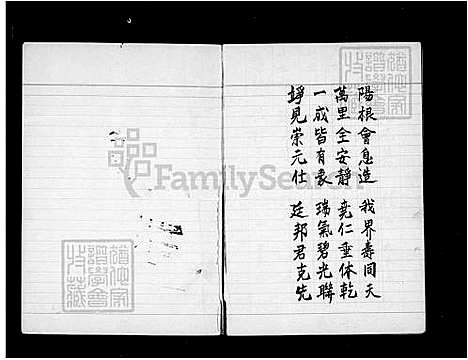 陽根會息造 我界壽同天
萬里全安靜 堯仁垂体乾
一成皆有象 瑞氣碧光聯
崢見崇元仕 廷邦君克先
FamilySearch